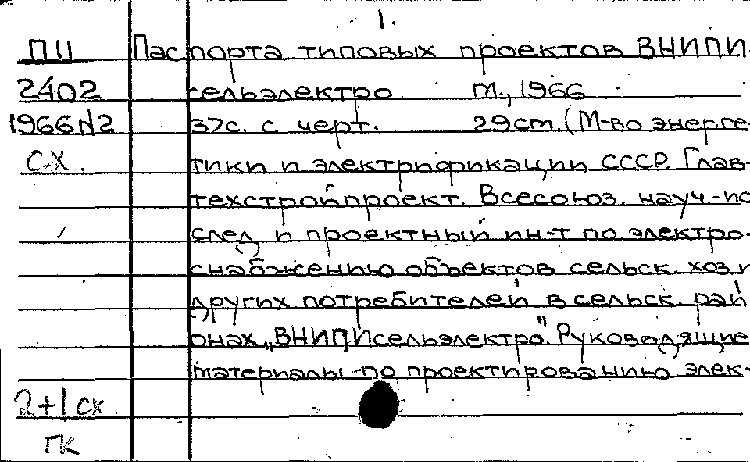 1.
П11 Паспорта типовых проектов ВНИПИ-
2402 сельэлектро М., 1966
1966 N2 37с. с черт. 29см. (М-во энерге-
СХ. тики и электрификации СССР. Глав-
техстройпроект. Всесоюз. науч-ис
след и проектный ин-т по электро-
снабжению объектов сельск. хоз и
других потребителей в сельск. рай
онах „ВНИПИсельэлектро". Руководящие
материалы по проектированию элек-
2+1 сх
ГК